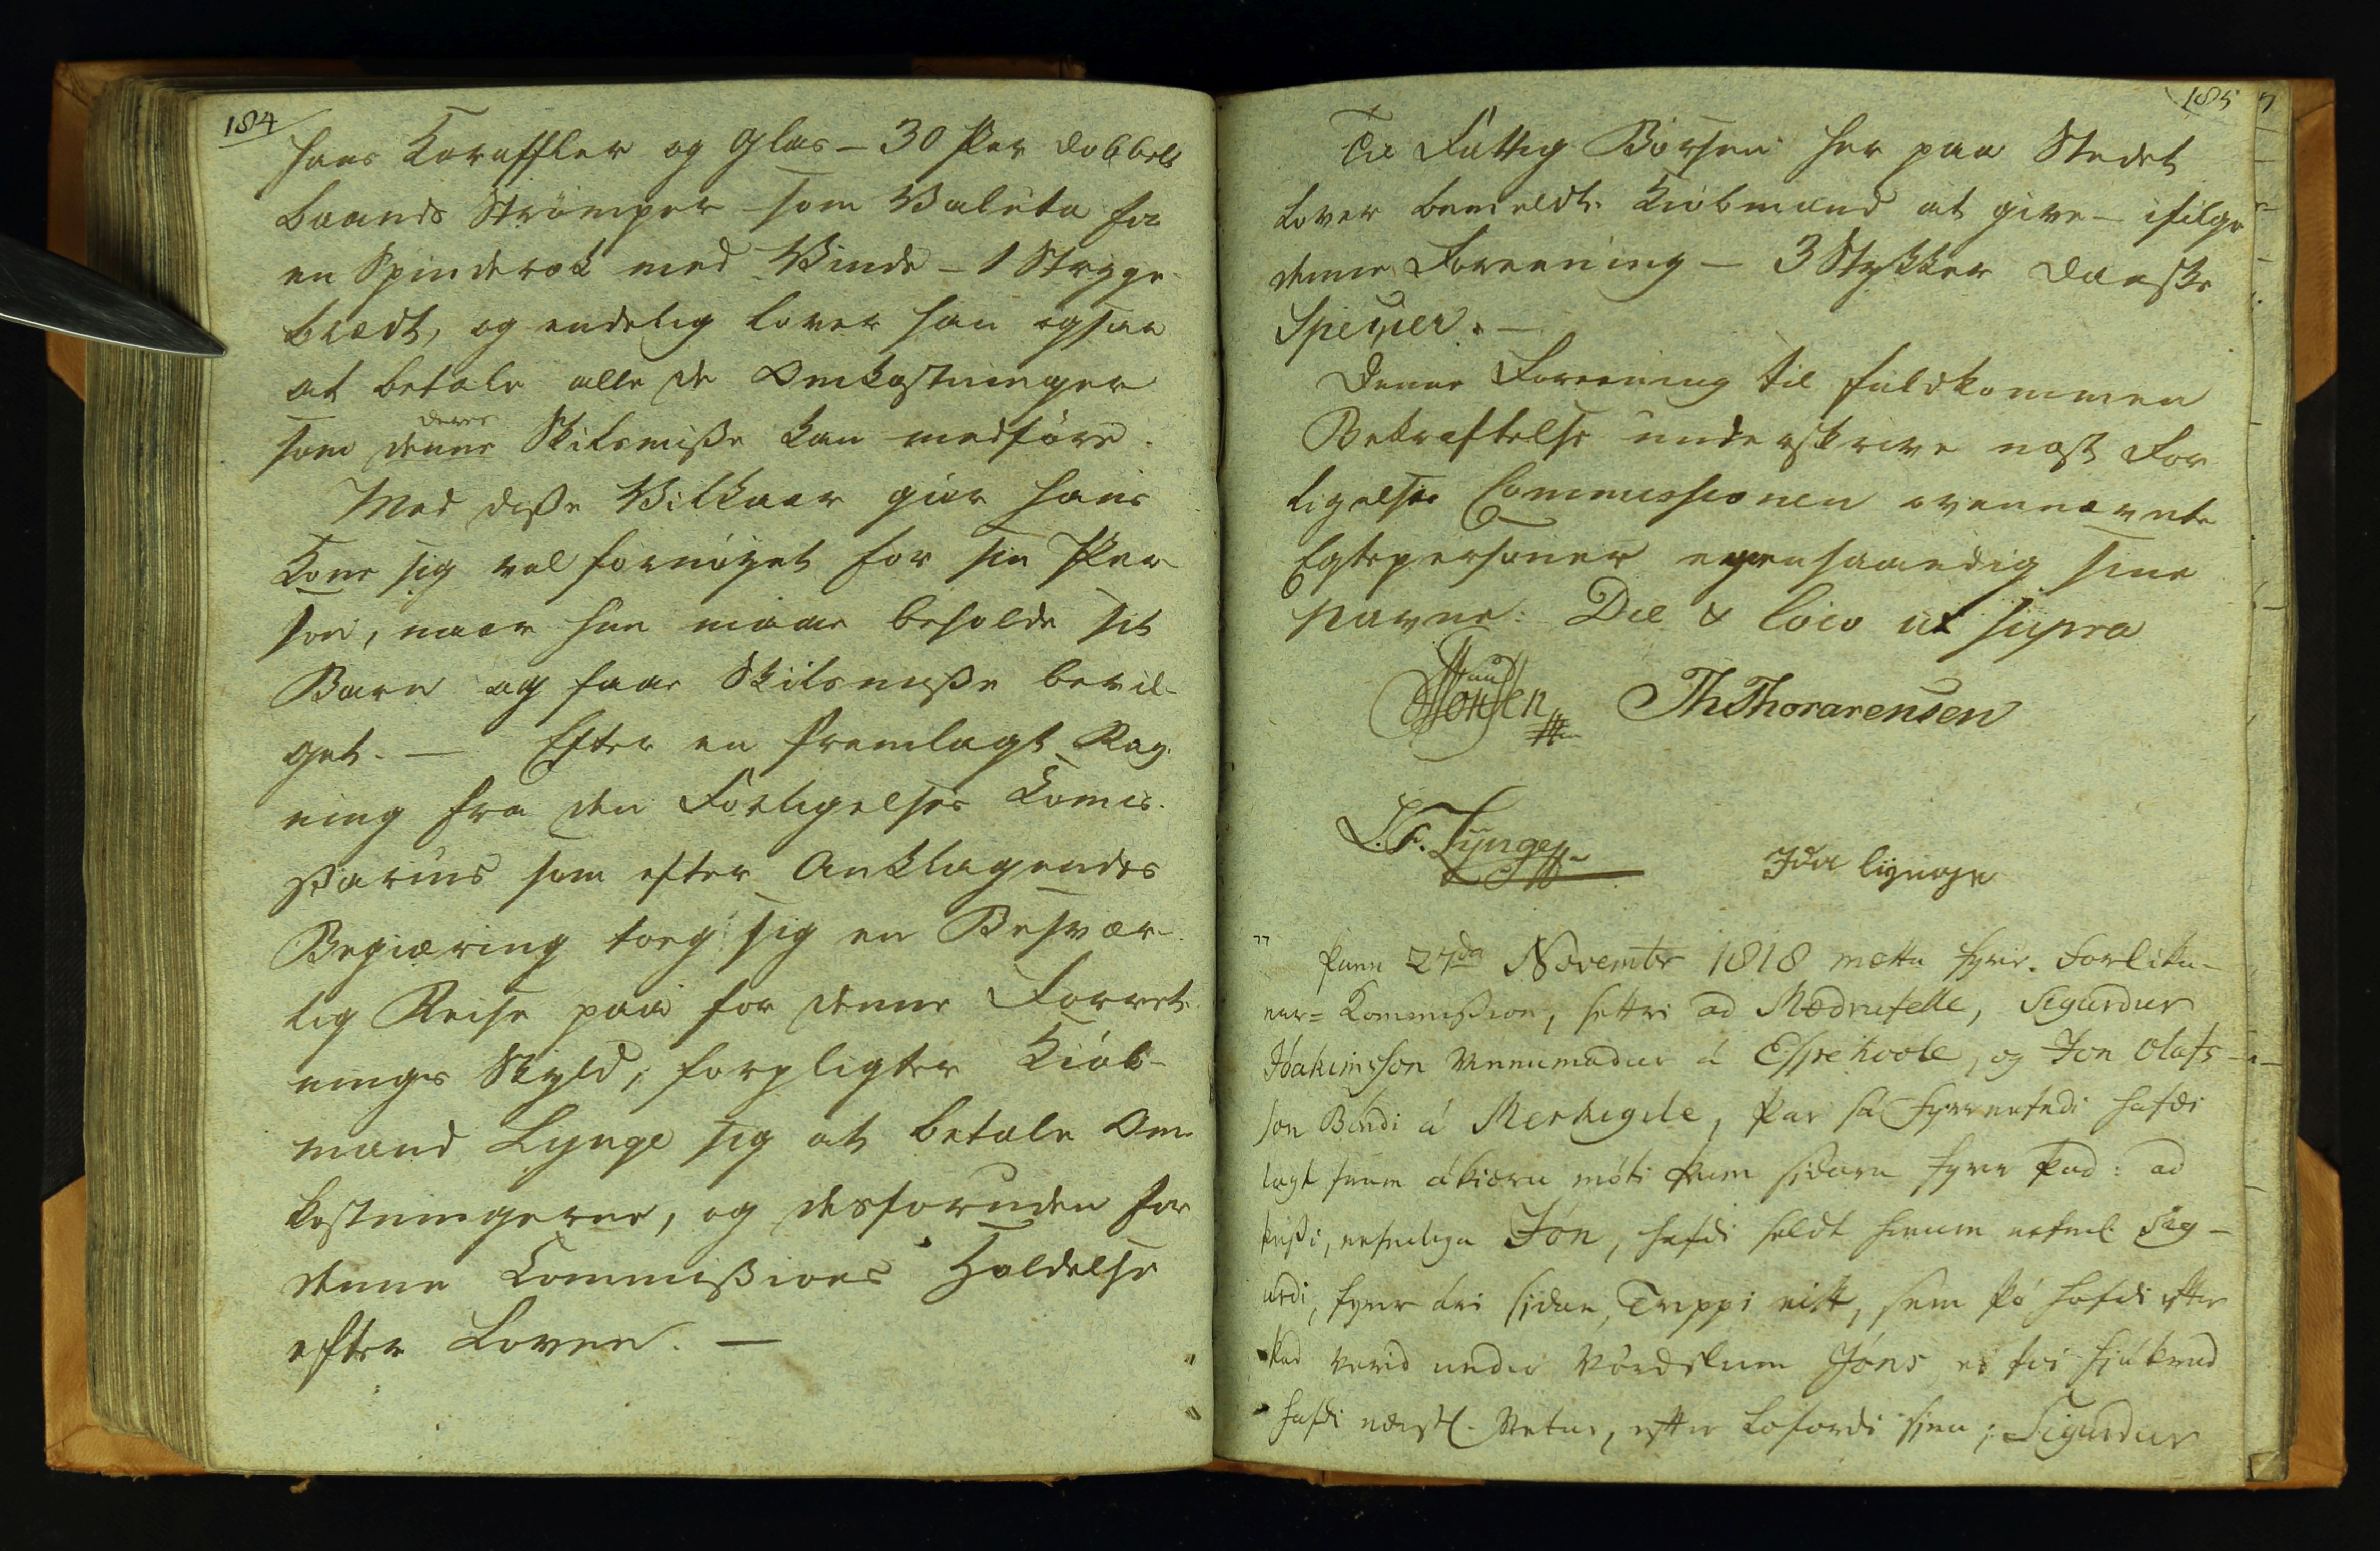 184
hans Karaffler og Glas – 30 Par dobbelt
baands Strömper som Valuta for
en Spinderok med Vinde – 1 Stryge-
brædt, og endelig lover han ogsaa
at betale alle de Omkostninger
deres
som denne Skilsmisse kan medföre.
Med disse Vilkaar giör hans
Kone sig vel fornöyet for sin Per-
son, naar hun maae beholde sit
Barn og faae Skilsmisse bevil-
get. – Efter en fremlagt Reg-
ning fra den Forligelses Komis-
sarius som efter Anklagendes
Begiæring tog sig en Besvær-
lig Reise paa for denne Forret-
nings Skyld, forpligter Kiöb-
mand Lynge sig at betale Om-
kostningerne, og desforuden for
denne Commissions Holdelse
efter Loven. –
185
Til Fattig Börsen her paa Stedet
lover bemeldte Kiöbmand at give – ifölge
denne Foreening – 3 Stykker danske
Specier. –
Denne Foreening til fuldkommen
Bekræftelse underskrive næst For-
ligelses Commissionen ovennævnte
Egtepersoner egenhaandig sine
Navne. Die & loco ut supra
Jonsen Th Thorarensen
L. F. Lynge
Ida lynge
Þann 27da Novembr 1818 mættu fyrir Forlíku-
nar= Kommission, settri ad Mödrufelle, Sigurdur
Jóakimsson Vinnumadur á Espehoole, og Jon Olafs-
son Bóndi á Merkigile, þar sá fyrrnefndi hafdi
lagt fram ákæru móti þeim sídara fyrir þad: ad
þessi, nefnilega Jón, hafdi seldt hinum nefnl. Sig-
urdi, fyrir ári sídan, Trippi eitt, sem þó hafdi eftir
þad verid undir Vördslum Jóns
hafdi næstl. Vetur, eftir Lofordi sínu; Sigurdur